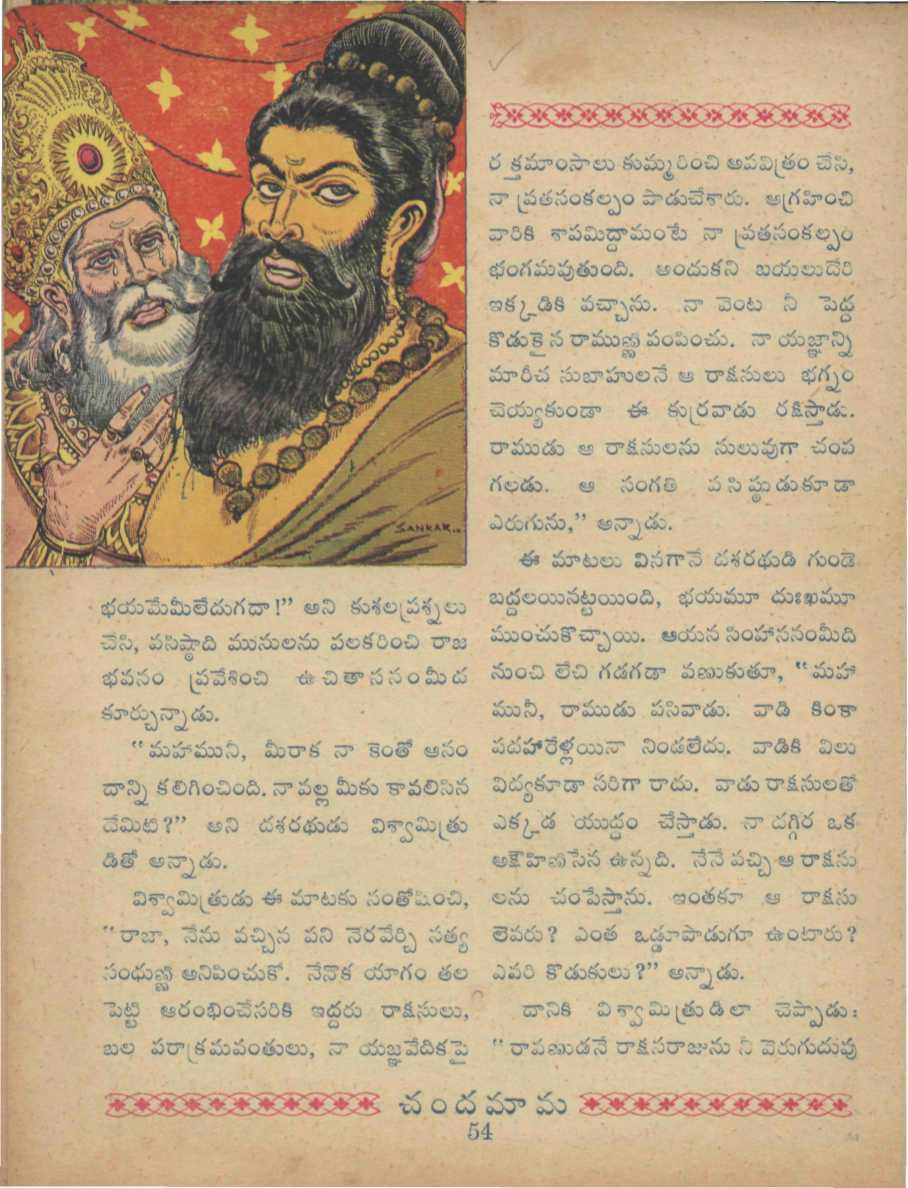 SANKAR..
భయమేమీలేదుగదా!” అని కుశలప్రశ్నలు
చేసి, వసిష్ఠాది మునులను పలకరించి రాజ
భవనం ప్రవేశించి ఉచితాసనంమీద
కూర్చున్నాడు.
“మహామునీ, మీరాక నా కెంతో ఆనం
దాన్ని కలిగించింది. నావల్ల మీకు కావలిసిన
దేమిటి?” అని దశరథుడు విశ్వామిత్రు
డితో అన్నాడు.
విశ్వామిత్రుడు ఈ మాటకు సంతోషించి,
“రాజా, నేను వచ్చిన పని నెరవేర్చి సత్య
సంధుణ్ణి అనిపించుకో. నేనొక యాగం తల
పెట్టి ఆరంభించేసరికి ఇద్దరు రాక్షసులు,
బల పరాక్రమవంతులు, నా యజ్ఞవేదికపై
రక్తమాంసాలు కుమ్మరించి అపవిత్రం చేసి,
నా వ్రతసంకల్పం పాడుచేశారు. ఆగ్రహించి
వారికి శాపమిద్దామంటే నా వ్రతసంకల్పం
భంగమవుతుంది. అందుకని బయలుదేరి
ఇక్కడికి వచ్చాను. నా వెంట నీ పెద్ద
కొడుకైన రాముణ్ణి పంపించు. నా యజ్ఞాన్ని
మారీచ సుబాహులనే ఆ రాక్షసులు భగ్నం
చెయ్యకుండా ఈ కుర్రవాడు రక్షిస్తాడు.
రాముడు ఆ రాక్షసులను సులువుగా చంప
గలడు. ఆ సంగతి వసిష్ఠుడుకూడా
ఎరుగును,” అన్నాడు.
ఈ మాటలు వినగానే దశరథుడి గుండె
బద్దలయినట్టయింది, భయమూ దుఃఖమూ
ముంచుకొచ్చాయి. ఆయన సింహాసనంమీది
నుంచి లేచి గడగడా వణుకుతూ, “మహా
మునీ, రాముడు పసివాడు. వాడి కింకా
పదహారేళ్లయినా నిండలేదు. వాడికి విలు
విద్యకూడా సరిగా రాదు. వాడు రాక్షసులతో
ఎక్కడ యుద్ధం చేస్తాడు. నా దగ్గిర ఒక
అక్షౌహిణిసేన ఉన్నది. నేనే వచ్చి ఆ రాక్షసు
లను చంపేస్తాను. ఇంతకూ ఆ రాక్షసు
లెవరు? ఎంత ఒడ్డూపొడుగూ ఉంటారు?
ఎవరి కొడుకులు?” అన్నాడు.
దానికి విశ్వామిత్రుడిలా చెప్పాడు:
“రావణుడనే రాక్షసరాజును నీ వెరుగుదువు
చందమామ
54